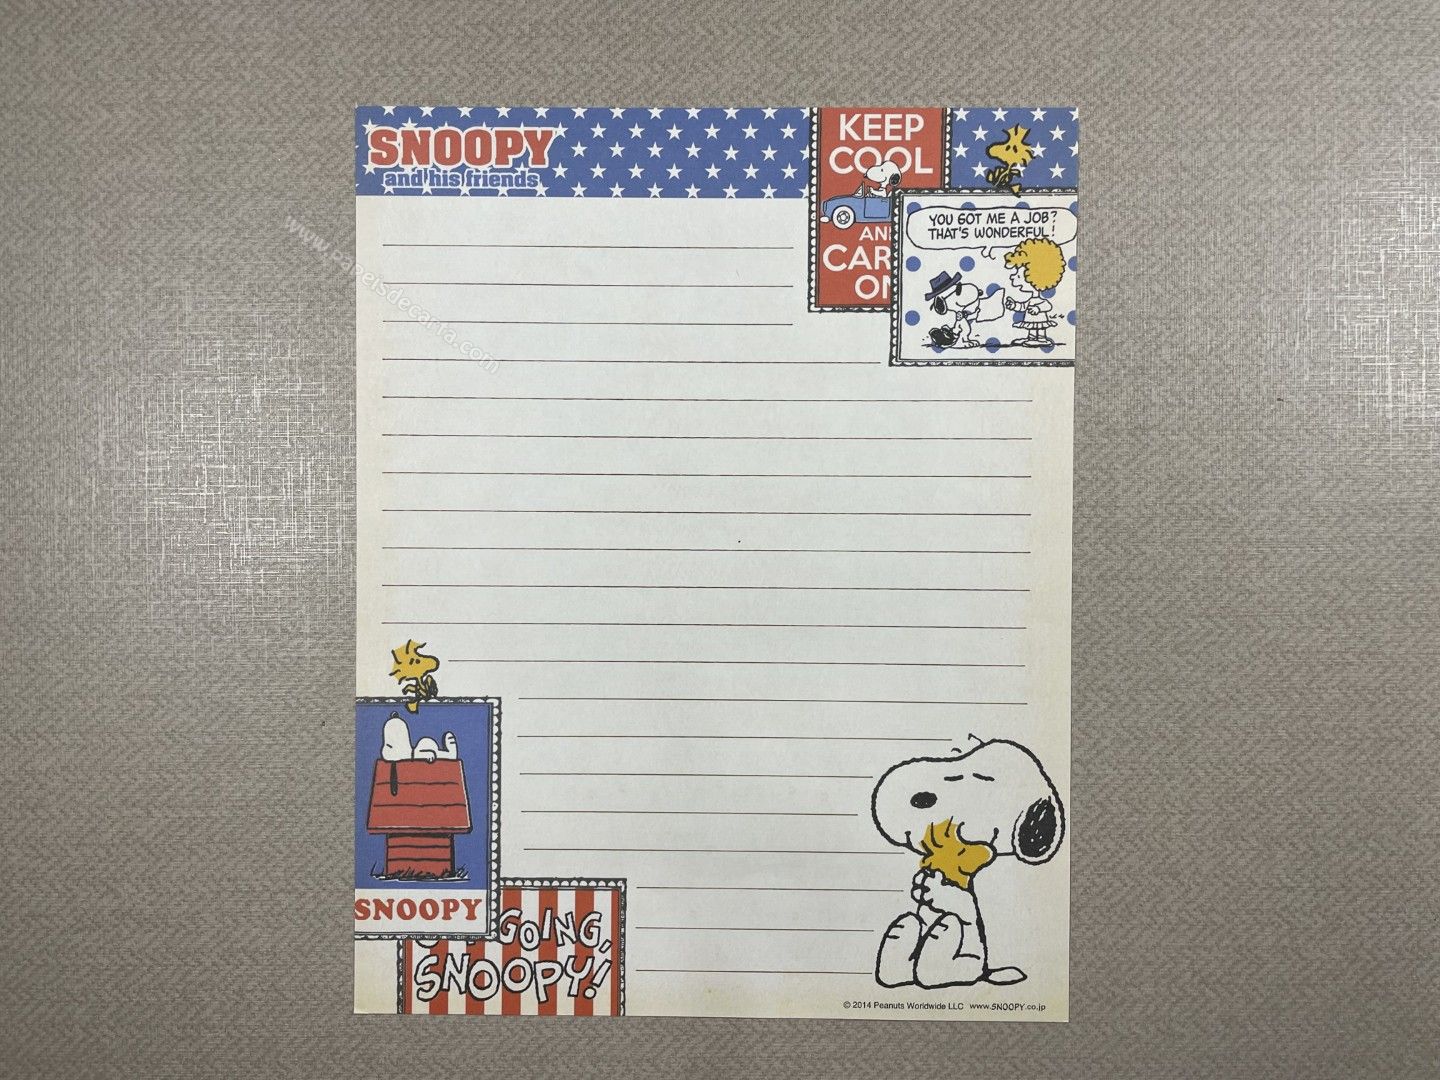 SNOOPY
and his friends
KEEP
COOL
YOU GOT ME A JOB?
THAT'S WONDERFUL!
www.papeisdecarta.com
SNOOPY
GOING,
SNOOPY!
© 2014 Peanuts Worldwide LLC www.SNOOPY.co.jp